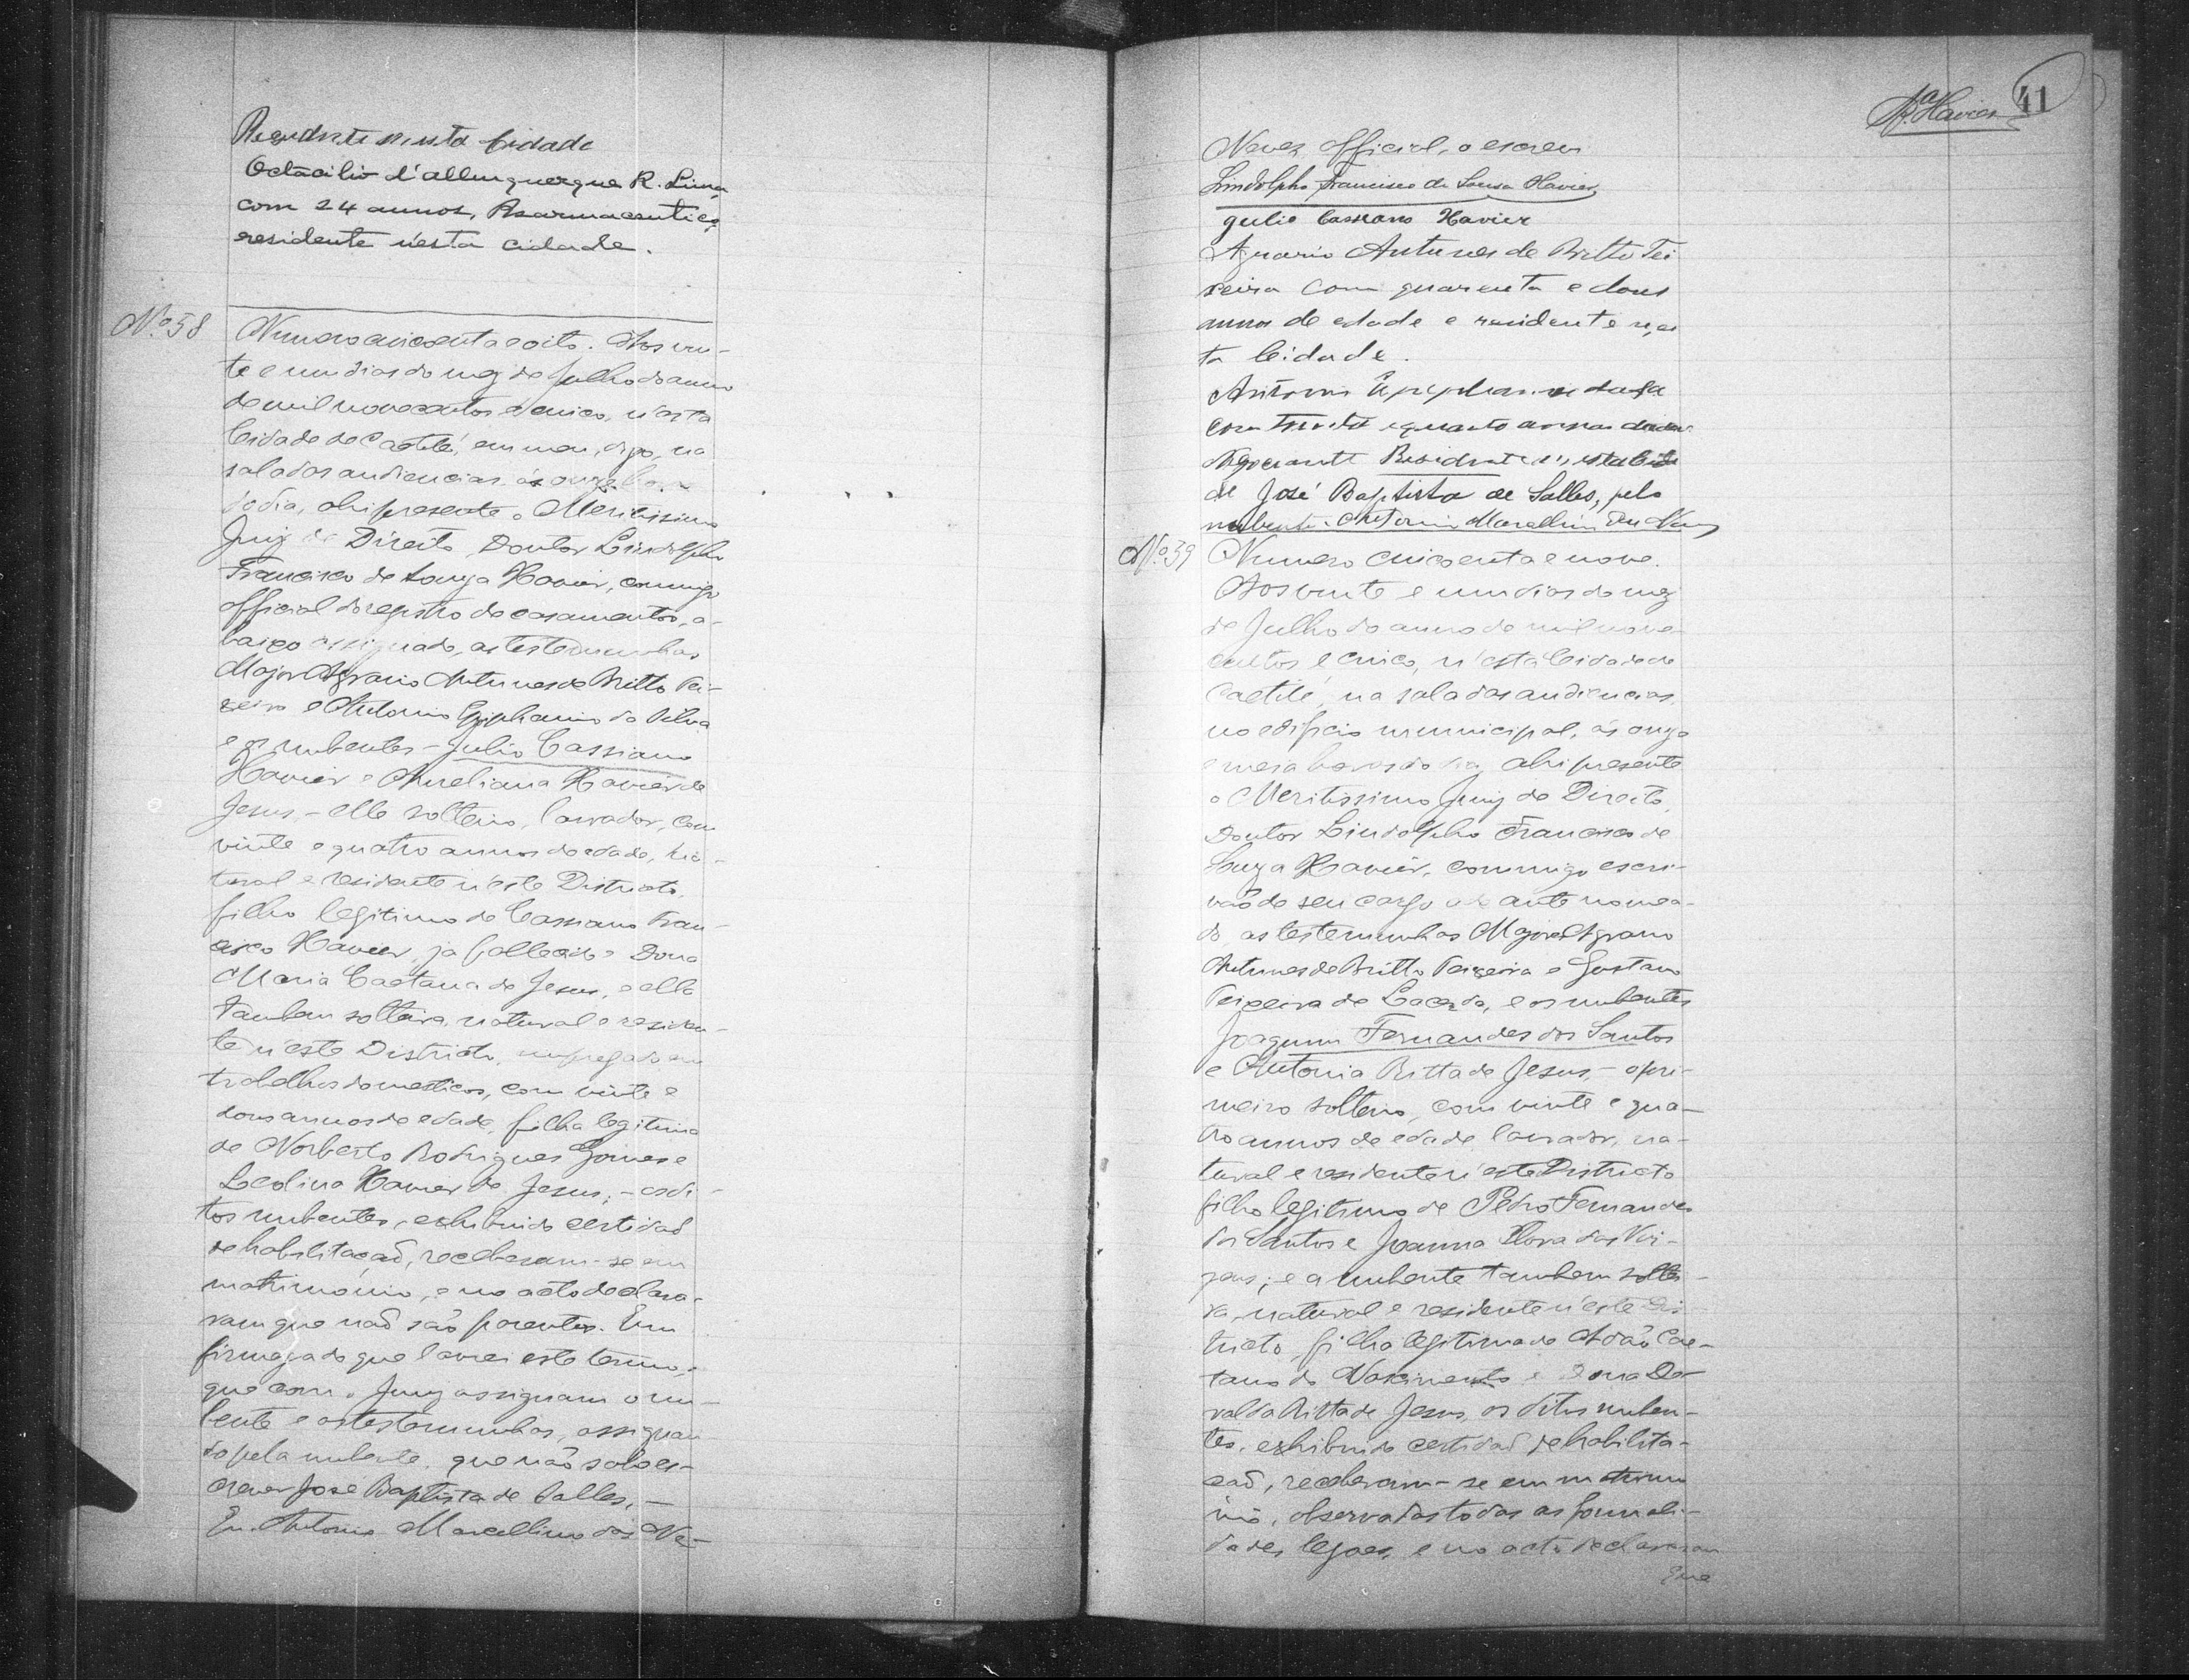 Residente n'esta Cidade
Octacilio d'Albuquerque R. Lima,
com 24 annos, Pharmaceutico,
residente n'esta cidade.
Nº 58
Numero cincoenta e oito. Aos vin-
te e um dias do mez de Julho do anno
de mil novecentos e cinco, n'esta
Cidade de Caetité, em meu, digo, na
sala das audiencias, ás onze horas
do dia, ahi presente o Meritissimo
Juiz de Direito, Doutor Lindolpho
Francisco de Souza Xavier, commigo
official do registro de casamentos, a-
baixo assignado, as testemunhas
Major Agrario Antunes de Britto Tei-
xeira e Antonio Epiphanio da Silva
e os nubentes - Julio Cassiano
Xavier e Aureliana Xavier de
Jesus, - elle solteiro, lavrador, com
vinte e quatro annos de edade, na-
tural e residente n'este Districto,
filho legitimo de Cassiano Fran-
cisco Xavier, ja fallecido e Dona
Maria Caetana de Jesus, e ella
tambem solteira, natural e residen-
te n'este Districto, empregada em
trabalhos domesticos, com vinte e
dous annos de edade, filha legitima
de Norberto Rodrigues Gomes e
Leolina Xavier de Jesus; - os di-
tos nubentes, exhibindo certidaõ
de habilitaçaõ, receberam-se em
matrimonio, e no acto declara-
ram que naõ são parentes. Em
firmeza do que lavrei este termo,
que com o Juiz assignam o nu-
bente e as testemunhas, assignan
do pela nubente, que não sabe es-
crever José Baptista de Salles, -
Eu, Antonio Marcellino das Ne-
41
Xavier
Neves, official, o escrevi
Lindolpho Francisco de Sousa Xavier
Julio Cassiano Xavier
Agrario Antunes de Britto Tei
xeira com quarenta e dous
annos de edade e residente nes
ta Cidade.
Antonio Epiphanio da Sa
com trinta e quatro annos de idade
Negociante Residente n'esta Cidade
José Baptista de Salles, pela
nubente. Antonio Marcellino das Neves
Nº 59
Numero cincoenta e nove.
Aos vinte e um dias do mez
de Julho do anno de mil nove-
centos e cinco, n'esta Cidade de
Caetité, na sala das audiencias,
no edificio municipal, ás onze
e meia horas do dia, ahi presente
o Meritissimo Juiz de Direito,
Doutor Lindolpho Francisco de
Souza Xavier, commigo escri-
vaõ de seu cargo ante nomea-
do, as testemunhas Major Agrario
Antunes de Britto Teixeira e Gustavo
Teixeira de Lacerda, e os nubentes
Joaquim Fernandes dos Santos
e Antonia Ritta de Jesus, - o pri-
meiro solteiro, com vinte e qua-
tro annos de edade, lavrador, na-
tural e residente n'este Districto
filho legitimo de Pedro Fernandes
dos Santos e Joanna Rosa das Vir-
gens; e a nubente tambem soltei-
ra, natural e residente n'este Dis-
tricto, filha legitima de Adão Cae-
tano do Nascimento e Dona De-
valda Ritta de Jesus, os ditos nuben-
tes, exhibindo certidaõ de habilita-
çaõ, receberam-se em matrimo
nio, observadas todas as formali-
dades legaes, e no acto declararam
que